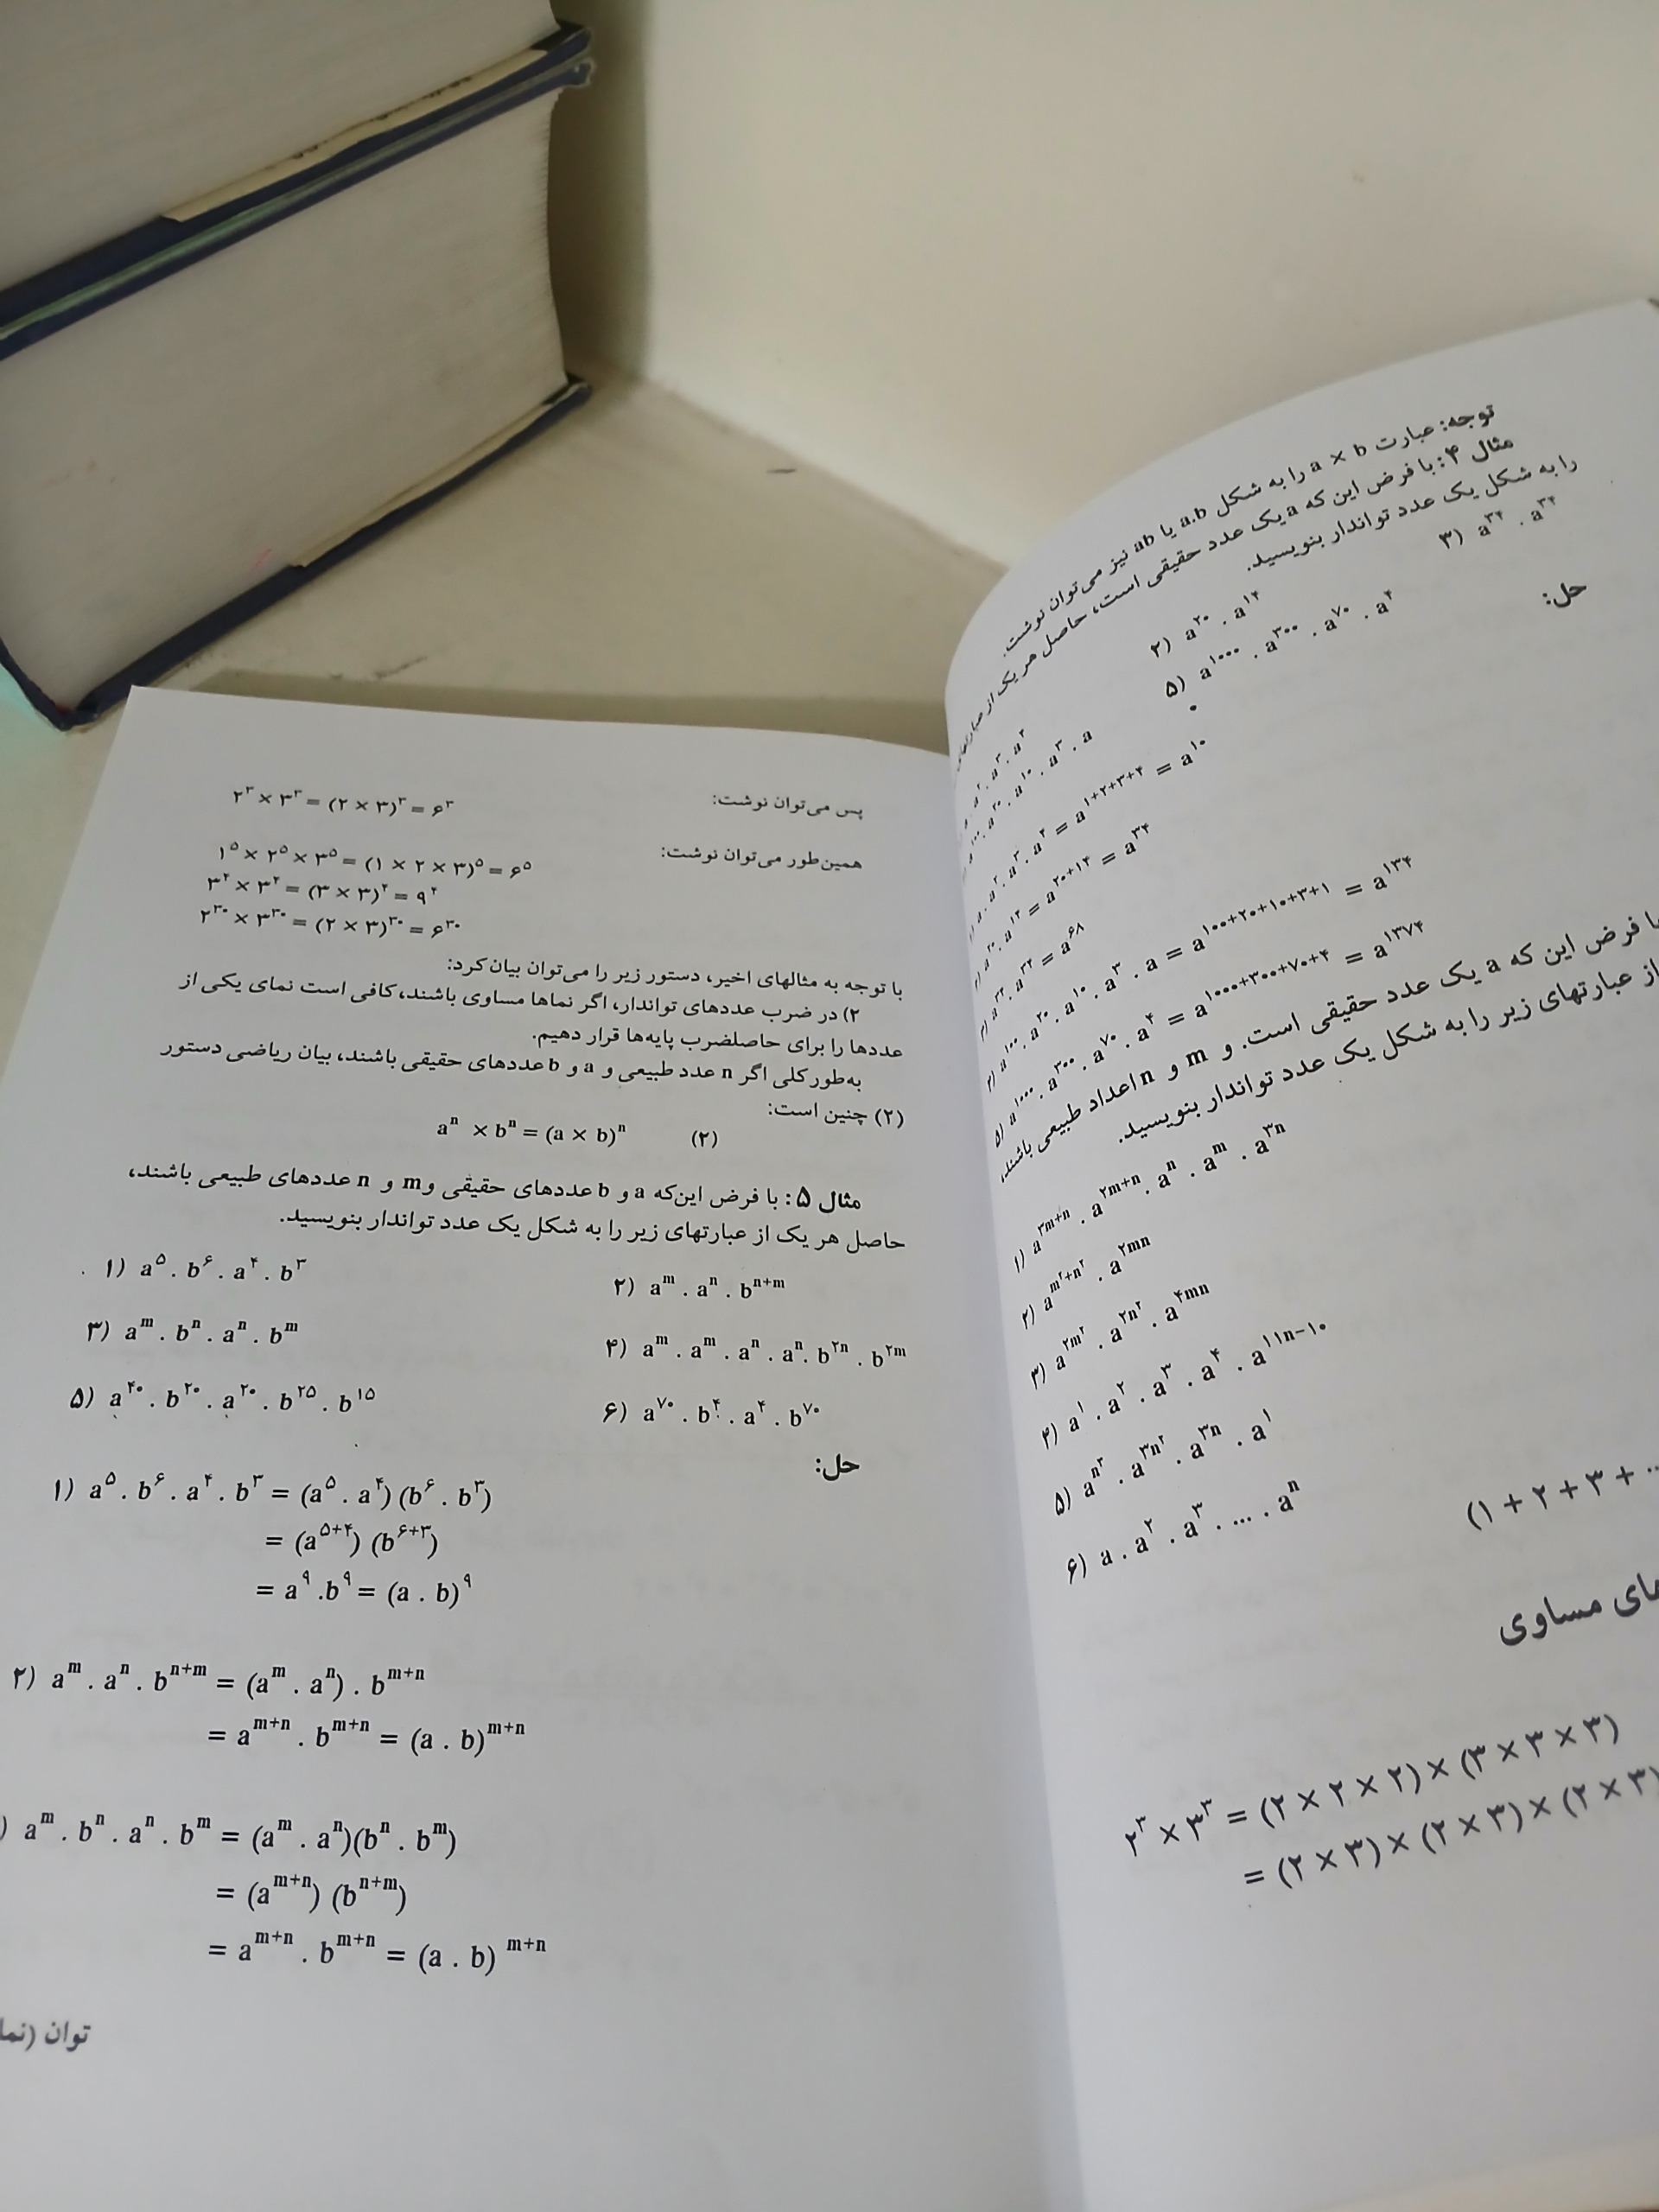 توجه: عبارت a × b را به شکل a.b یا ab نیز می‌توان نوشت.
مثال ۴: با فرض این که a یک عدد حقیقی است، حاصل هر یک از عبارتهای
را به شکل یک عدد تواندار بنویسید.
a^۲ . a^۳ . a^۴
۲) a^۲۰ . a^۱۴
۳) a^۳۴ . a^۳۴
a^۱۰۰ . a^۲۰ . a^۱۰ . a^۳ . a
۵) a^۱۰۰۰ . a^۳۰۰ . a^۷۰ . a^۴
حل:
۱) a . a^۲ . a^۳ . a^۴ = a^۱+۲+۳+۴ = a^۱۰
۲) a^۲۰ . a^۱۴ = a^۲۰+۱۴ = a^۳۴
۳) a^۳۴ . a^۳۴ = a^۶۸
۴) a^۱۰۰ . a^۲۰ . a^۱۰ . a^۳ . a = a^۱۰۰+۲۰+۱۰+۳+۱ = a^۱۳۴
۵) a^۱۰۰۰ . a^۳۰۰ . a^۷۰ . a^۴ = a^۱۰۰۰+۳۰۰+۷۰+۴ = a^۱۳۷۴
فرض این که a یک عدد حقیقی است. و m و n اعداد طبیعی باشند،
از عبارتهای زیر را به شکل یک عدد تواندار بنویسید.
۱) a^۳m+n . a^۲m+n . a^n . a^m . a^۳n
۲) a^m^۲+n^۲ . a^۲mn
۳) a^۲m^۲ . a^۲n^۲ . a^۴mn
۴) a^۱ . a^۲ . a^۳ . a^۴ . a^۱۱n-۱۰
۵) a^n^۳ . a^۳n^۲ . a^۳n . a^۱
۶) a . a^۲ . a^۳ . ... . a^n
(۱ + ۲ + ۳ + ...
مساوی
۲^۳ × ۳^۳ = (۲ × ۲ × ۲) × (۳ × ۳ × ۳)
= (۲ × ۳) × (۲ × ۳) × (۲ × ۳)
پس می‌توان نوشت: ۲^۳ × ۳^۳ = (۲ × ۳)^۳ = ۶^۳
همین‌طور می‌توان نوشت: ۱^۵ × ۲^۵ × ۳^۵ = (۱ × ۲ × ۳)^۵ = ۶^۵
۳^۴ × ۳^۴ = (۳ × ۳)^۴ = ۹^۴
۲^۳۰ × ۳^۳۰ = (۲ × ۳)^۳۰ = ۶^۳۰
با توجه به مثالهای اخیر، دستور زیر را می‌توان بیان کرد:
۲) در ضرب عددهای تواندار، اگر نماها مساوی باشند، کافی است نمای یکی از
عددها را برای حاصلضرب پایه‌ها قرار دهیم.
به‌طور کلی اگر n عدد طبیعی و a و b عددهای حقیقی باشند، بیان ریاضی دستور
(۲) چنین است:
a^n × b^n = (a × b)^n (۲)
مثال ۵: با فرض این‌که a و b عددهای حقیقی و m و n عددهای طبیعی باشند،
حاصل هر یک از عبارتهای زیر را به شکل یک عدد تواندار بنویسید.
۱) a^۵ . b^۶ . a^۴ . b^۳
۲) a^m . a^n . b^n+m
۳) a^m . b^n . a^n . b^m
۴) a^m . a^m . a^n . a^n . b^۲n . b^۲m
۵) a^۴۰ . b^۲۰ . a^۲۰ . b^۲۵ . b^۱۵
۶) a^۷۰ . b^۴ . a^۴ . b^۷۰
حل:
۱) a^۵ . b^۶ . a^۴ . b^۳ = (a^۵ . a^۴) (b^۶ . b^۳)
= (a^۵+۴) (b^۶+۳)
= a^۹ . b^۹ = (a . b)^۹
۲) a^m . a^n . b^n+m = (a^m . a^n) . b^m+n
= a^m+n . b^m+n = (a . b)^m+n
) a^m . b^n . a^n . b^m = (a^m . a^n)(b^n . b^m)
= (a^m+n) (b^n+m)
= a^m+n . b^m+n = (a . b)^m+n
توان (نما